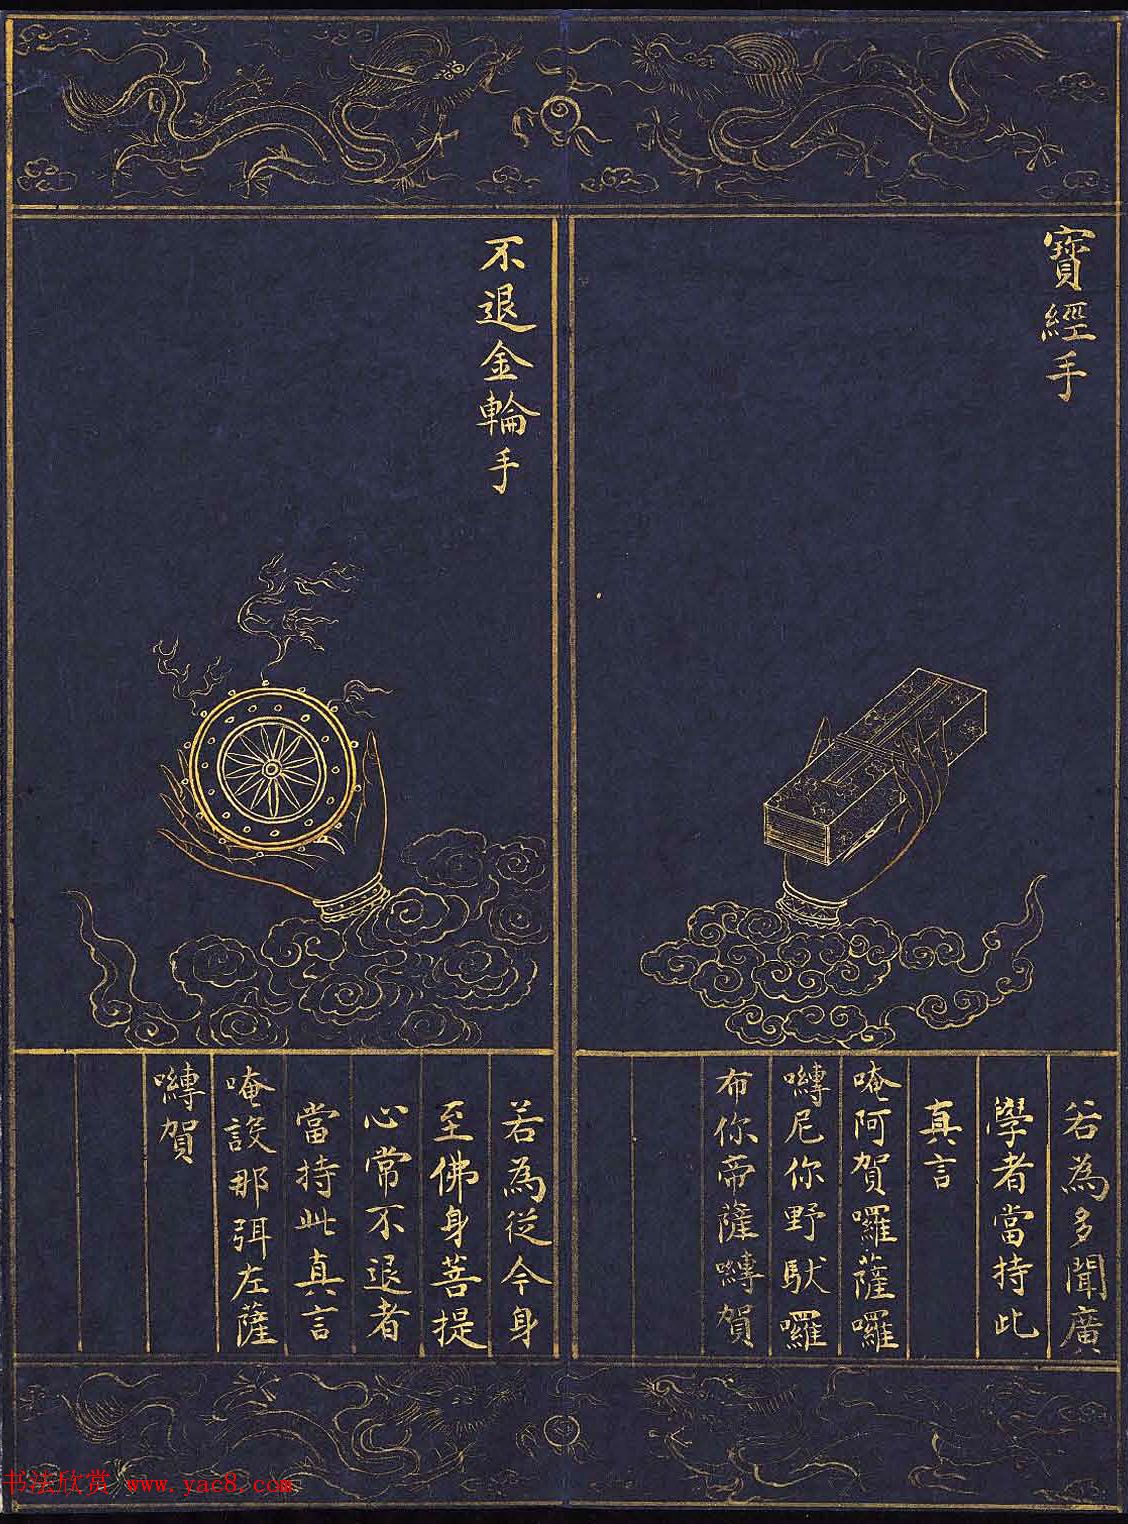 寶經手
若為多聞廣
學者當持此
真言
唵阿賀囉薩囉
嚩尼你野馱囉
布你帝薩嚩賀
不退金輪手
若為從今身
至佛身菩提
心常不退者
當持此真言
唵設那弭左薩
嚩賀
书法欣赏 www.yac8.com